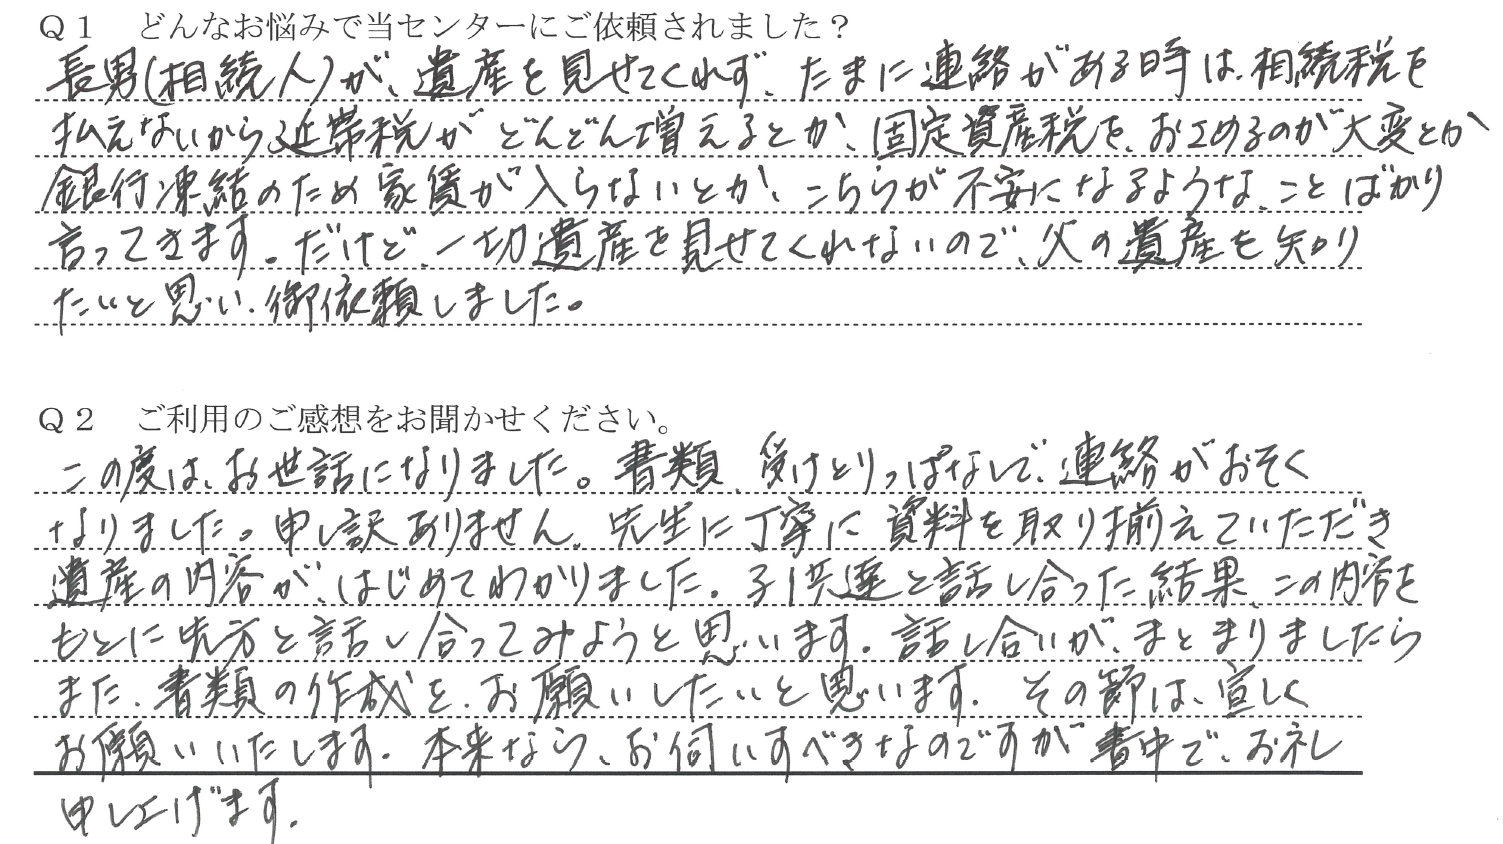 Q1 どんなお悩みで当センターにご依頼されました？
長男(相続人)が、遺産を見せてくれず、たまに連絡がある時は、相続税を
払えないから延滞税がどんどん増えるとか、固定資産税を、おさめるのが大変とか
銀行凍結のため家賃が入らないとか、こちらが不安になるような、ことばかり
言ってきます。だけど、一切遺産を見せてくれないので、父の遺産を知り
たいと思い、御依頼しました。
Q2 ご利用のご感想をお聞かせください。
この度は、お世話になりました。書類、受けとりっぱなしで、連絡がおそく
なりました。申し訳ありません。先生に丁寧に資料を取り揃えていただき
遺産の内容が、はじめてわかりました。子供達と話し合った結果、この内容を
もとに先方と話し合ってみようと思います。話し合いが、まとまりましたら
また、書類の作成を、お願いしたいと思います。その節は、宜しく
お願いいたします。本来なら、お伺いすべきなのですが書中で、お礼
申し上げます。